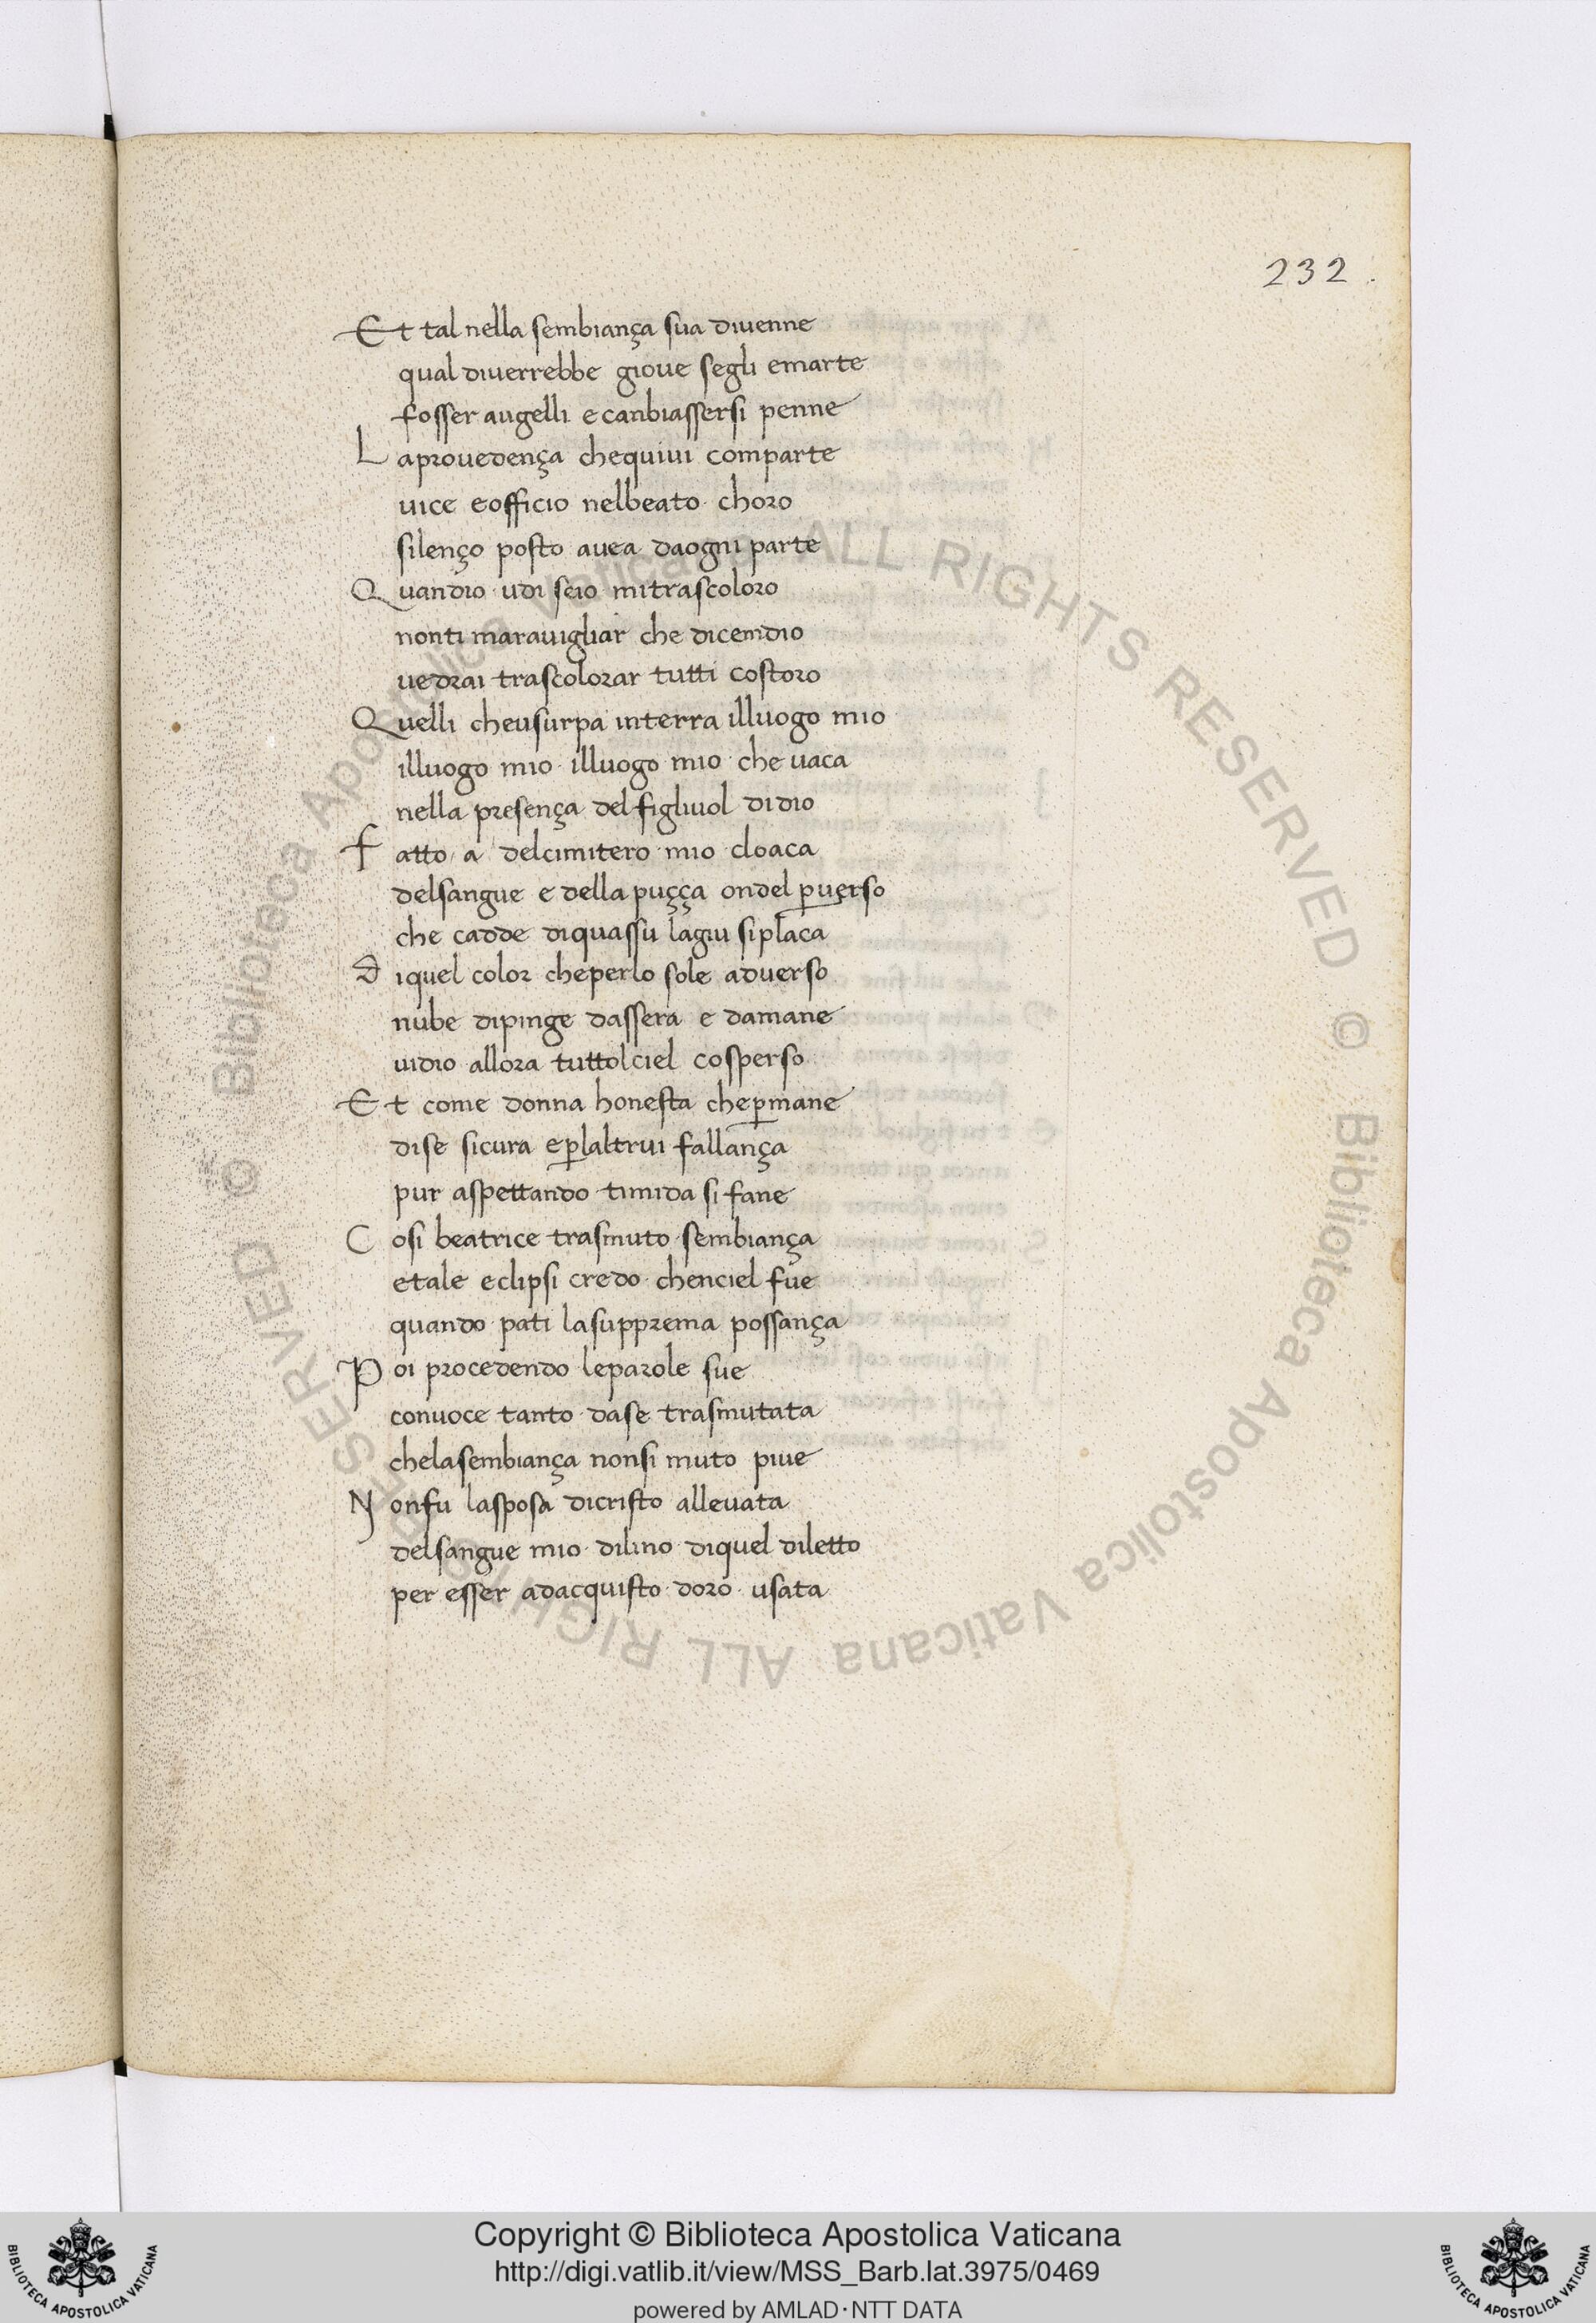 232
Et tal nella sembiança sua divenne
qual diverrebbe giove segli emarte
fosser augelli e canbiassersi penne
L aprovedença chequivi comparte
vice eofficio nelbeato choro
silenço posto avea daogni parte
Quandio udi seio mitrascoloro
nonti maravigliar che dicendio
vedrai trascolorar tutti costoro
Quelli cheusurpa interra illuogo mio
illuogo mio illuogo mio che vaca
nella presença del figliuol didio
f atto a delcimitero mio cloaca
delsangue e della puçça ondel ꝑverso
che cadde diquassu lagiu siplaca
d iquel color cheperlo sole adverso
nube dipinge dassera e damane
vidio allora tuttolciel cosperso
Et come donna honesta cheꝑmane
dise sicura eꝑlaltrui fallança
pur aspettando timida si fane
C osi beatrice trasmuto sembiança
etale eclipsi credo chenciel fue
quando pati lasupprema possança
P oi procedendo leparole sue
convoce tanto dase trasmutata
chelasembiança nonsi muto piue
N onfu lasposa dicristo allevata
delsangue mio dilino diquel diletto
per esser adacquisto doro usata
© Biblioteca Apostolica Vaticana ALL RIGHTS RESERVED © Biblioteca Apostolica Vaticana ALL RIGHTS RESERVED
BIBLIOTECA APOSTOLICA VATICANA
Copyright © Biblioteca Apostolica Vaticana
http://digi.vatlib.it/view/MSS_Barb.lat.3975/0469
powered by AMLAD·NTT DATA
BIBLIOTECA APOSTOLICA VATICANA